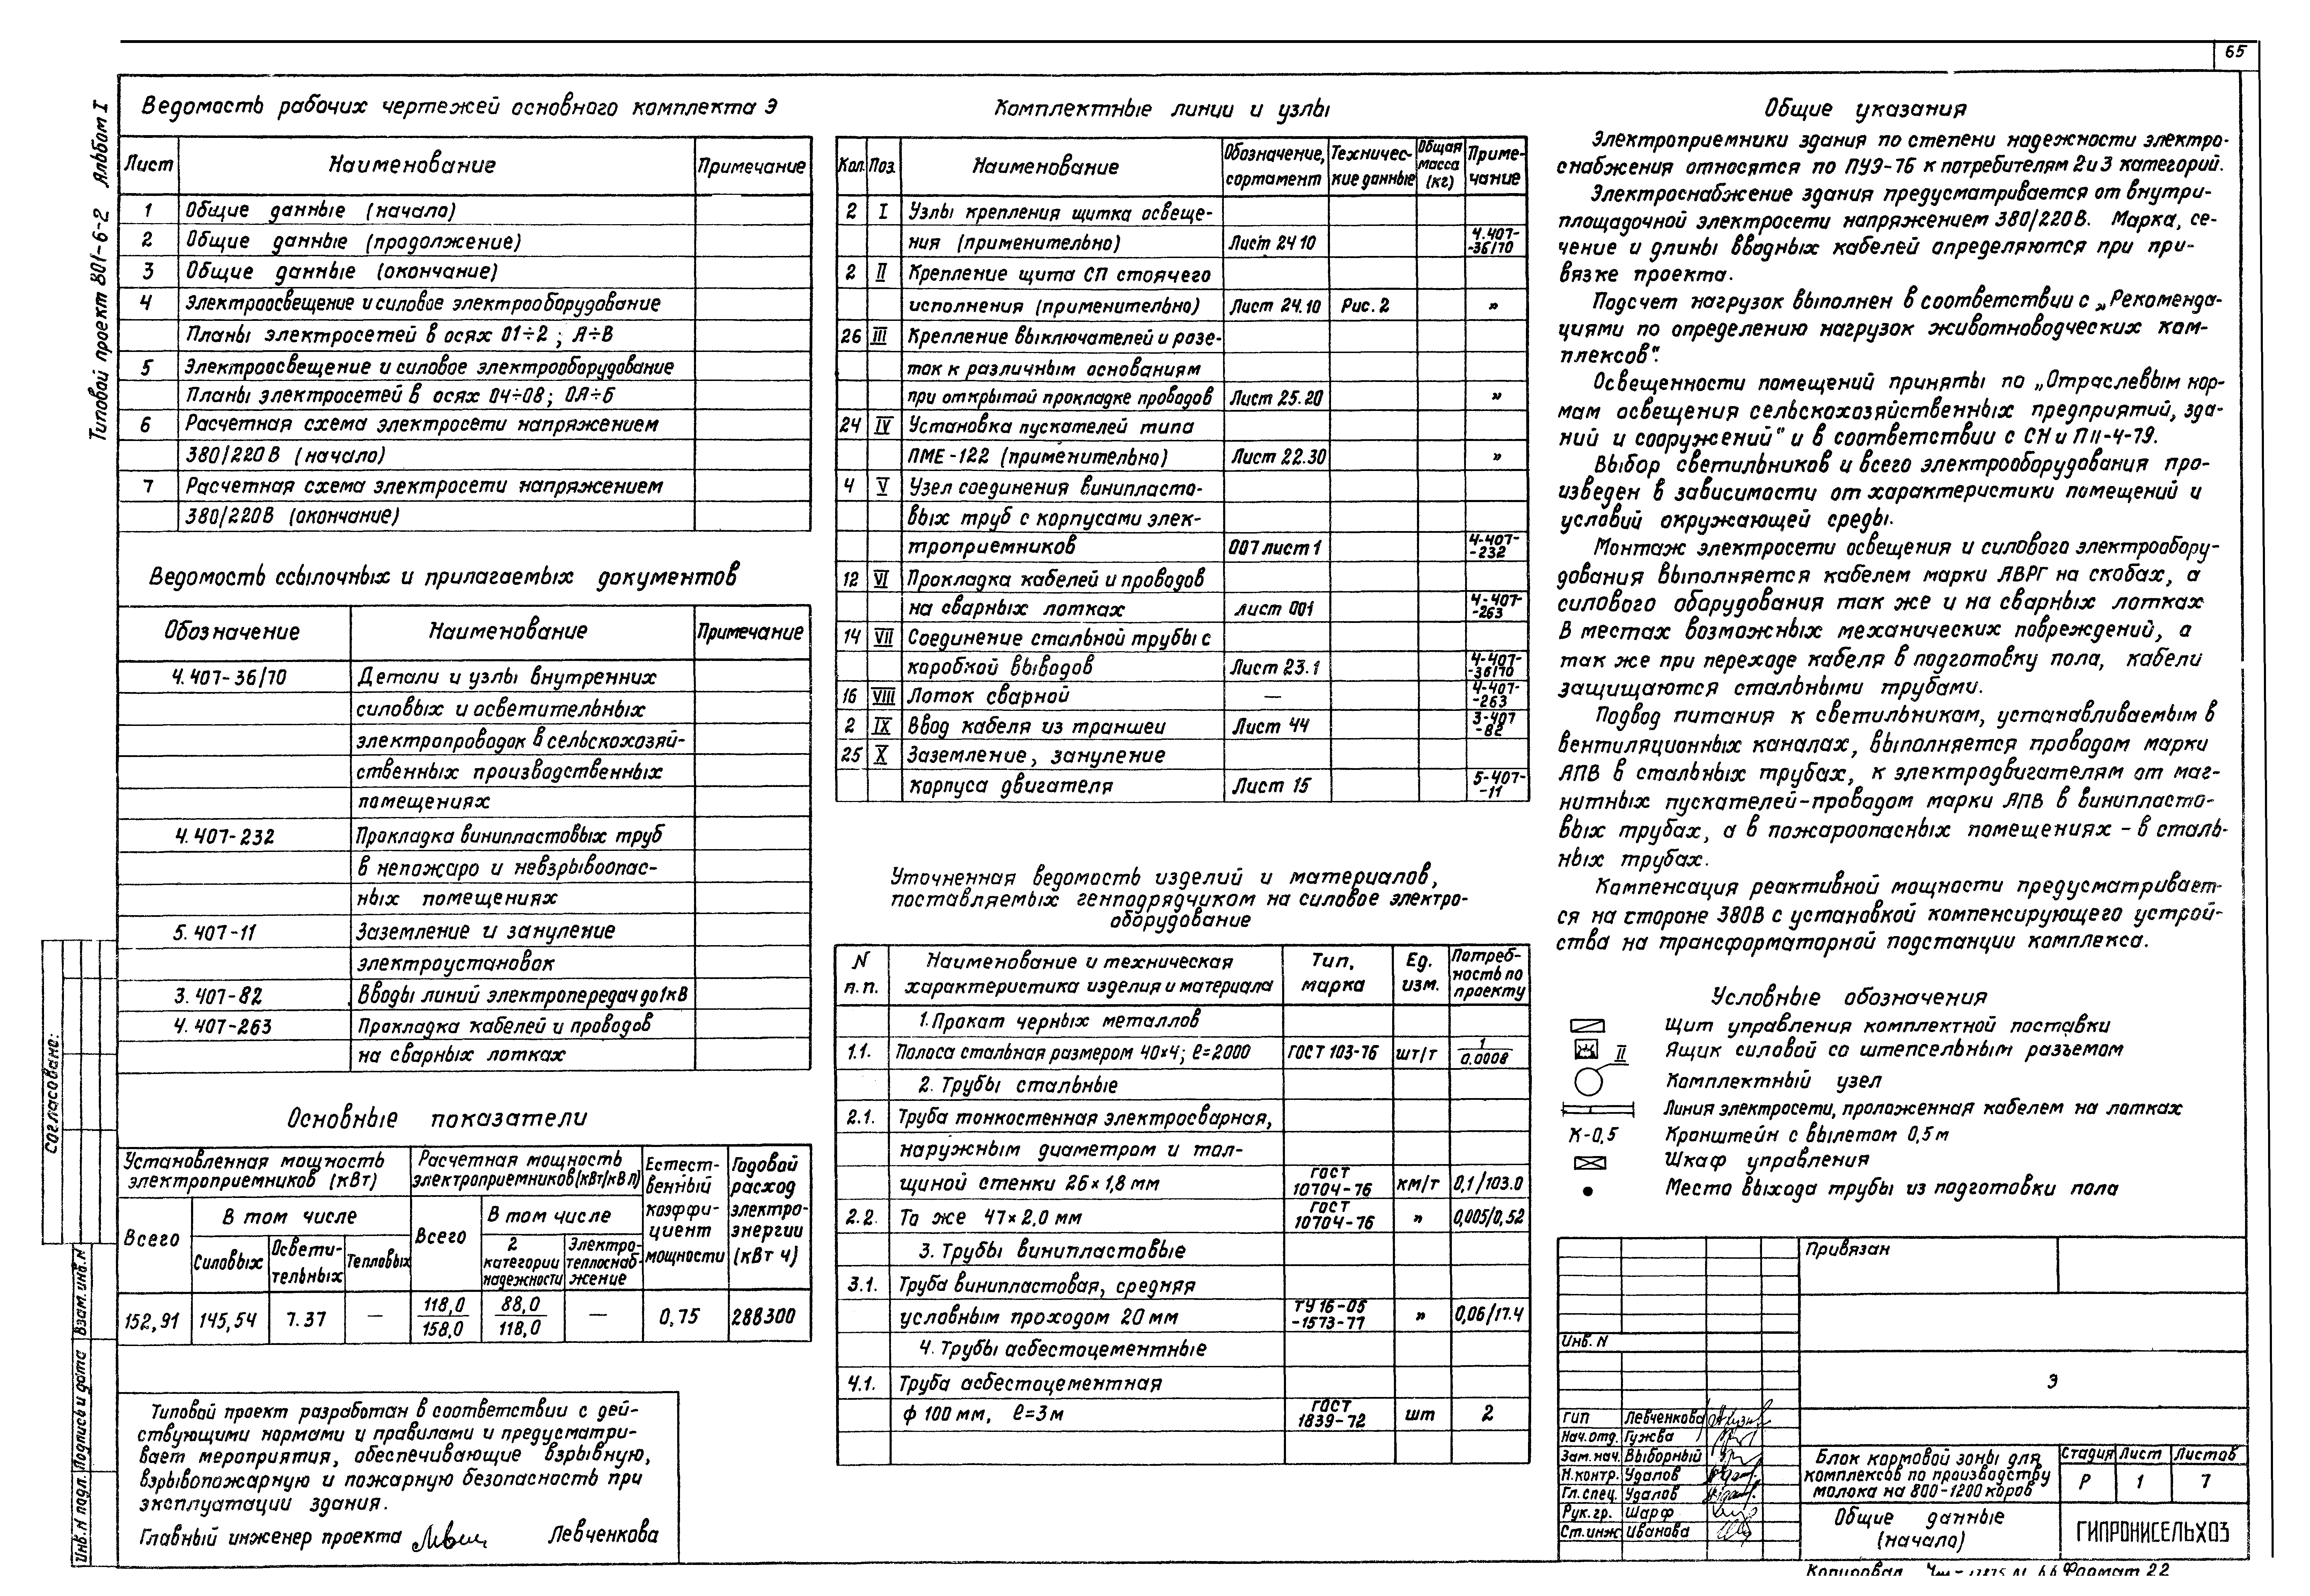 65
Типовой проект 801-6-2 Альбом I
Ведомость рабочих чертежей основного комплекта Э
Лист Наименование Примечание
1 Общие данные (начало)
2 Общие данные (продолжение)
3 Общие данные (окончание)
4 Электроосвещение и силовое электрооборудование
Планы электросетей в осях 01÷2; А÷В
5 Электроосвещение и силовое электрооборудование
Планы электросетей в осях 04÷08; 0А÷Б
6 Расчетная схема электросети напряжением
380/220В (начало)
7 Расчетная схема электросети напряжением
380/220В (окончание)
Ведомость ссылочных и прилагаемых документов
Обозначение Наименование Примечание
4.407-36/70 Детали и узлы внутренних
силовых и осветительных
электропроводок в сельскохозяй-
ственных производственных
помещениях
4.407-232 Прокладка винипластовых труб
в непожаро и невзрывоопас-
ных помещениях
5.407-11 Заземление и зануление
электроустановок
3.407-82 Вводы линий электропередач до 1кВ
4.407-263 Прокладка кабелей и проводов
на сварных лотках
Основные показатели
Установленная мощность электроприемников (кВт)
Расчетная мощность электроприемников (кВт/кВА)
Естест-
венный
коэффи-
циент
мощности
Годовой
расход
электро-
энергии
(кВт ч)
Всего В том числе Всего В том числе
Силовых Освети-
тельных Тепловых
2
категории
надежности
Электро-
теплоснаб-
жение
152,91 145,54 7.37 — 118,0/158,0 88,0/118,0 — 0,75 288300
Типовой проект разработан в соответствии с дей-
ствующими нормами и правилами и предусматри-
вает мероприятия, обеспечивающие взрывную,
взрывопожарную и пожарную безопасность при
эксплуатации здания.
Главный инженер проекта Левченкова
Комплектные линии и узлы
Кол. Поз. Наименование Обозначение, сортамент Техничес-
кие данные Общая масса (кг) Приме-
чание
2 I Узлы крепления щитка освеще-
ния (применительно) Лист 24 10 4.407-
-36/70
2 II Крепление щита СП стоячего
исполнения (применительно) Лист 24.10 Рис. 2 "
26 III Крепление выключателей и розе-
ток к различным основаниям
при открытой прокладке проводов Лист 25.20 "
24 IV Установка пускателей типа
ПМЕ-122 (применительно) Лист 22.30 "
4 V Узел соединения винипласто-
вых труб с корпусами элек-
троприемников 007 лист 1 4-407-
-232
12 VI Прокладка кабелей и проводов
на сварных лотках лист 001 4-407-
-263
14 VII Соединение стальной трубы с
коробкой выводов Лист 23.1 4-407-
-36/70
16 VIII Лоток сварной — 4-407-
-263
2 IX Ввод кабеля из траншеи Лист 44 3-407
-82
25 X Заземление, зануление
корпуса двигателя Лист 15 5-407-
-11
Уточненная ведомость изделий и материалов,
поставляемых генподрядчиком на силовое электро-
оборудование
N п.п. Наименование и техническая характеристика изделия и материала Тип, марка Ед. изм. Потреб-
ность по проекту
1. Прокат черных металлов
1.1. Полоса стальная размером 40×4; ℓ=2000 ГОСТ 103-76 шт/т 1/0.0008
2. Трубы стальные
2.1. Труба тонкостенная электросварная,
наружным диаметром и тол-
щиной стенки 26×1,8 мм ГОСТ 10704-76 км/т 0,1/103.0
2.2. То же 47×2,0 мм ГОСТ 10704-76 " 0,005/0,52
3. Трубы винипластовые
3.1. Труба винипластовая, средняя
условным проходом 20 мм ТУ 16-05
-1573-77 " 0,06/17.4
4. Трубы асбестоцементные
4.1. Труба асбестоцементная
ф 100 мм, ℓ=3м ГОСТ 1839-72 шт 2
Общие указания
Электроприемники здания по степени надежности электро-
снабжения относятся по ПУЭ-76 к потребителям 2 и 3 категорий.
Электроснабжение здания предусматривается от внутри-
площадочной электросети напряжением 380/220В. Марка, се-
чение и длины вводных кабелей определяются при при-
вязке проекта.
Подсчет нагрузок выполнен в соответствии с „Рекоменда-
циями по определению нагрузок животноводческих ком-
плексов".
Освещенности помещений приняты по „Отраслевым нор-
мам освещения сельскохозяйственных предприятий, зда-
ний и сооружений" и в соответствии с СН и П II-4-79.
Выбор светильников и всего электрооборудования про-
изведен в зависимости от характеристики помещений и
условий окружающей среды.
Монтаж электросети освещения и силового электрообору-
дования выполняется кабелем марки АВРГ на скобах, а
силового оборудования так же и на сварных лотках
В местах возможных механических повреждений, а
так же при переходе кабеля в подготовку пола, кабели
защищаются стальными трубами.
Подвод питания к светильникам, устанавливаемым в
вентиляционных каналах, выполняется проводом марки
АПВ в стальных трубах, к электродвигателям от маг-
нитных пускателей-проводом марки АПВ в винипласто-
вых трубах, а в пожароопасных помещениях - в сталь-
ных трубах.
Компенсация реактивной мощности предусматривает-
ся на стороне 380В с установкой компенсирующего устрой-
ства на трансформаторной подстанции комплекса.
Условные обозначения
Щит управления комплектной поставки
Ящик силовой со штепсельным разъемом
II Комплектный узел
Линия электросети, проложенная кабелем на лотках
К-0,5 Кронштейн с вылетом 0,5 м
Шкаф управления
Место выхода трубы из подготовки пола
Привязан
Инв. N
Э
ГИП Левченкова
Нач.отд. Гужва
Зам.нач. Выборный
Н.контр. Удалов
Гл.спец. Удалов
Рук.гр. Шарф
Ст.инж Иванова
Блок кормовой зоны для
комплексов по производству
молока на 800-1200 коров
Стадия Лист Листов
Р 1 7
Общие данные
(начало)
ГИПРОНИСЕЛЬХОЗ
Копировал Формат 22
Согласовано:
Взам. инв. N
Подпись и дата
Инв. N подл.